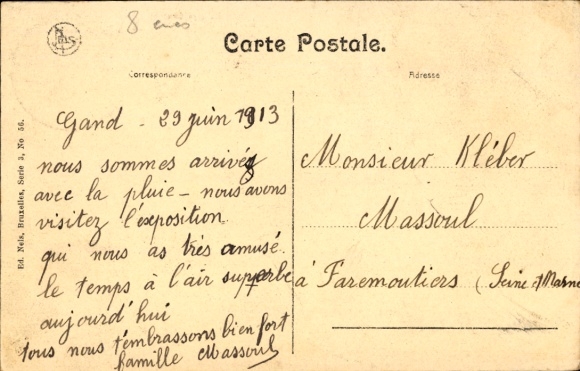 8 
Carte Postale.
Correspondance
Adresse
Ed. Nels, Bruxelles, Serie 3, No 56.
Gand - 29 juin 1913
nous sommes arrivés
avec la pluie - nous avons
visitez l'exposition
qui nous as très amusé.
le temps à l'air superbe
aujourd'hui
tous nous t'embrassons bien fort
famille Massoul
Monsieur Kléber
Massoul
à Faremoutiers (Seine et Marne